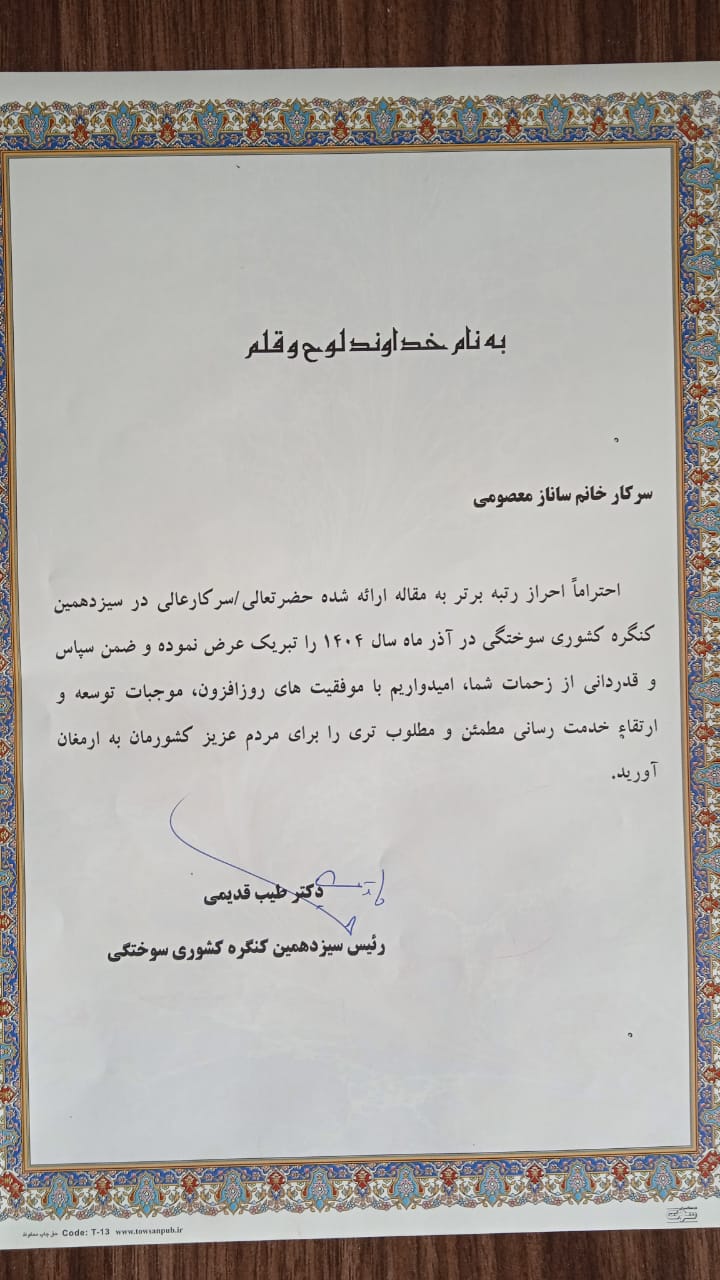 به نام خداوند لوح و قلم
سرکار خانم ساناز معصومی
احتراماً احراز رتبه برتر به مقاله ارائه شده حضرتعالی/سرکارعالی در سیزدهمین
کنگره کشوری سوختگی در آذر ماه سال ۱۴۰۴ را تبریک عرض نموده و ضمن سپاس
و قدردانی از زحمات شما، امیدواریم با موفقیت های روزافزون، موجبات توسعه و
ارتقاءِ خدمت رسانی مطمئن و مطلوب تری را برای مردم عزیز کشورمان به ارمغان
آورید.
دکتر طیب قدیمی
رئیس سیزدهمین کنگره کشوری سوختگی
حق چاپ محفوظ Code: T-13 www.towsanpub.ir